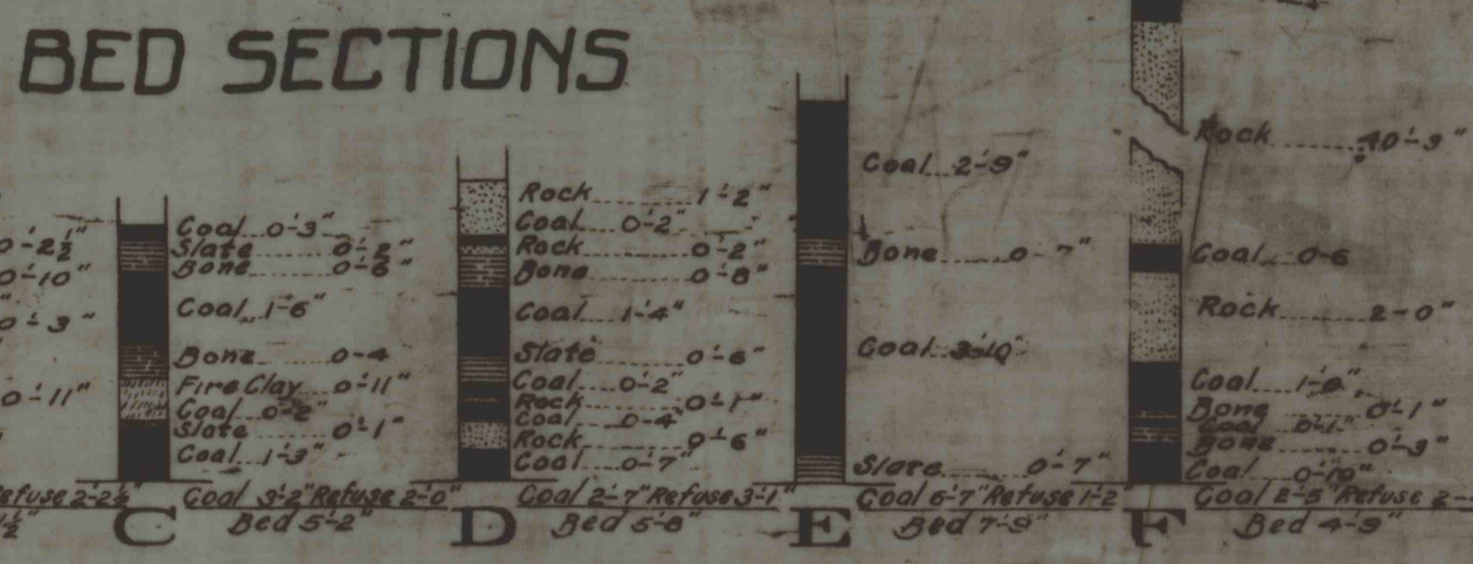 BED SECTIONS
0'-2½"
0'-10"
0'-3"
0'-11"
Refuse 2'-2½"
½"
Coal 0'-3"
Slate 0'-2"
Bone 0'-6"
Coal 1'-6"
Bone 0-4
Fire Clay 0'-11"
Coal 0'-2"
Slate 0'-1"
Coal 1'-3"
Coal 3'-2" Refuse 2'-0"
Bed 5'-2"
C
Rock 1'-2"
Coal 0'-2"
Rock 0'-2"
Bone 0'-8"
Coal 1'-4"
Slate 0'-6"
Coal 0'-2"
Rock 0'-1"
Coal 0'-4"
Rock 0'-6"
Coal 0'-7"
Coal 2'-7" Refuse 3'-1"
Bed 5'-8"
D
Coal 2'-9"
Bone 0-7"
Coal 3'-10"
Slate 0'-7"
Coal 6'-7" Refuse 1'-2"
Bed 7'-9"
E
Rock 40'-3"
Coal 0-6
Rock 2-0"
Coal
Bone 0'-1"
Coal 0'-1"
Bone 0'-3"
Coal 0'-10"
Coal 2-5" Refuse 2-
Bed 4'-9"
F